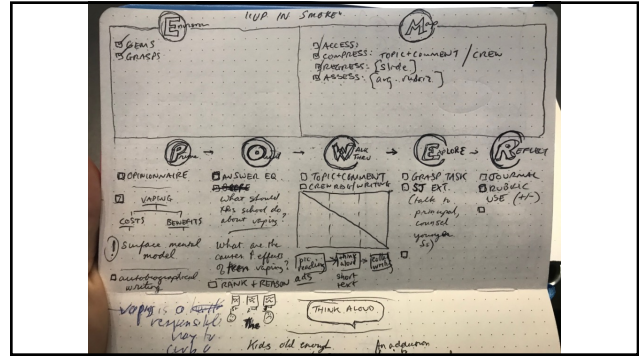 "UP IN SMOKE"
Envision
Map
GEMS
GRASPS
ACCESS:
COMPRESS: TOPIC+COMMENT / CREW
REGRESS:
ASSESS: [arg. rubric]
Prime → → WALK THRU → EXPLORE → REFLECT
OPINIONNAIRE
VAPING
COSTS BENEFITS
! Surface mental
model
autobiographical
writing
ANSWER EQ.
What should
school do
about vaping?
What are the
causes & effects
of vaping?
RANK + REASON
TOPIC+COMMENT
CREW RDG/WRITING
pic reading → think aloud →
ads short
text
GRASP TASK
SJ EXT.
(talk to
principal,
counsel
younger
Ss)
JOURNAL
RUBRIC
USE (+/-)
vaping is a
responsible
way to
The
THINK ALOUD
Kids old enough